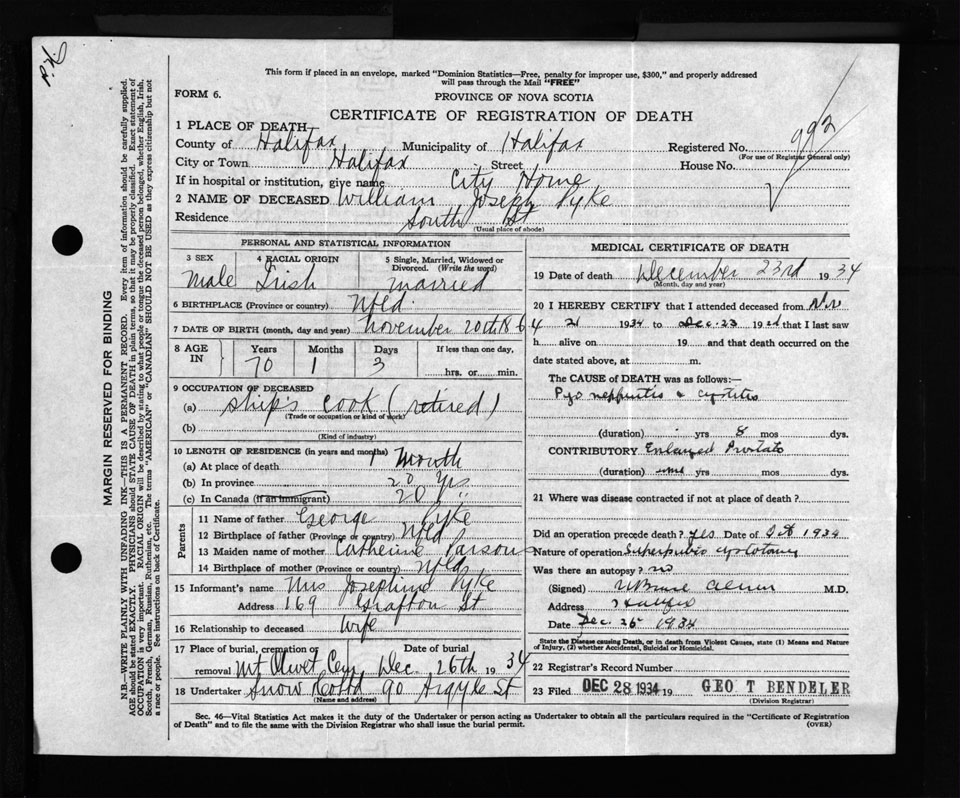 This form if placed in an envelope, marked "Dominion Statistics—Free, penalty for improper use, $300," and properly addressed
will pass through the Mail "FREE"
FORM 6.
PROVINCE OF NOVA SCOTIA
CERTIFICATE OF REGISTRATION OF DEATH
1 PLACE OF DEATH—
County of Halifax Municipality of Halifax Registered No. 993
(For use of Registrar General only)
City or Town Halifax Street House No.
If in hospital or institution, give name City Home
2 NAME OF DECEASED William Joseph Pyke
Residence South St
(Usual place of abode)
PERSONAL AND STATISTICAL INFORMATION
3 SEX 4 RACIAL ORIGIN 5 Single, Married, Widowed or
Divorced. (Write the word)
Male Irish Married
6 BIRTHPLACE (Province or country) Nfld.
7 DATE OF BIRTH (month, day and year) November 20th 1864
8 AGE IN Years Months Days If less than one day,
70 1 3 hrs. or min.
9 OCCUPATION OF DECEASED
(a) Ship's cook (retired)
(Trade or occupation or kind of work)
(b)
(Kind of industry)
10 LENGTH OF RESIDENCE (in years and months)
(a) At place of death 1 Month
(b) In province 20 Yrs
(c) In Canada (if an immigrant) 20 "
Parents
11 Name of father George Pyke
12 Birthplace of father (Province or country) Nfld
13 Maiden name of mother Catherine Parsons
14 Birthplace of mother (Province or country) Nfld
15 Informant's name Mrs Josephine Pyke
Address 169 Grafton St
16 Relationship to deceased Wife
17 Place of burial, cremation or Date of burial
removal Mt Olivet Cem Dec. 26th 1934
18 Undertaker Snow & Co Ltd 90 Argyle St
(Name and address)
MEDICAL CERTIFICATE OF DEATH
19 Date of death December 23rd 1934
(Month, day and year)
20 I HEREBY CERTIFY that I attended deceased from Nov
21 1934 to Dec. 23 19 that I last saw
h alive on 19 and that death occurred on the
date stated above, at m.
The CAUSE of DEATH was as follows:—
Pyo nephritis & cystitis
(duration) yrs 8 mos dys.
CONTRIBUTORY Enlarged Prostate
(duration) yrs mos dys.
21 Where was disease contracted if not at place of death?
Did an operation precede death? yes Date of Oct 1934
Nature of operation Suprapubic cystotomy
Was there an autopsy? no
(Signed) M.D.
Address Halifax
Date Dec. 26 1934
State the Disease causing Death, or in death from Violent Causes, state (1) Means and Nature
of Injury, (2) whether Accidental, Suicidal or Homicidal.
22 Registrar's Record Number
23 Filed DEC 28 1934 19 GEO T BENDELER
(Division Registrar)
Sec. 46—Vital Statistics Act makes it the duty of the Undertaker or person acting as Undertaker to obtain all the particulars required in the "Certificate of Registration
of Death" and to file the same with the Division Registrar who shall issue the burial permit. (OVER)
MARGIN RESERVED FOR BINDING
N.B.—WRITE PLAINLY WITH UNFADING INK—THIS IS A PERMANENT RECORD. Every item of information should be carefully supplied.
AGE should be stated EXACTLY. PHYSICIANS should STATE CAUSE OF DEATH in plain terms, so that it may be properly classified. Exact statement of
OCCUPATION is very important. RACIAL ORIGIN will be described by stating to what people or tongue the deceased person belonged, whether English, Irish,
Scotch, French, German, Russian, Ruthenian, etc. The terms "AMERICAN" or "CANADIAN" SHOULD NOT BE USED as they express citizenship but not
a race or people. See instructions on back of Certificate.